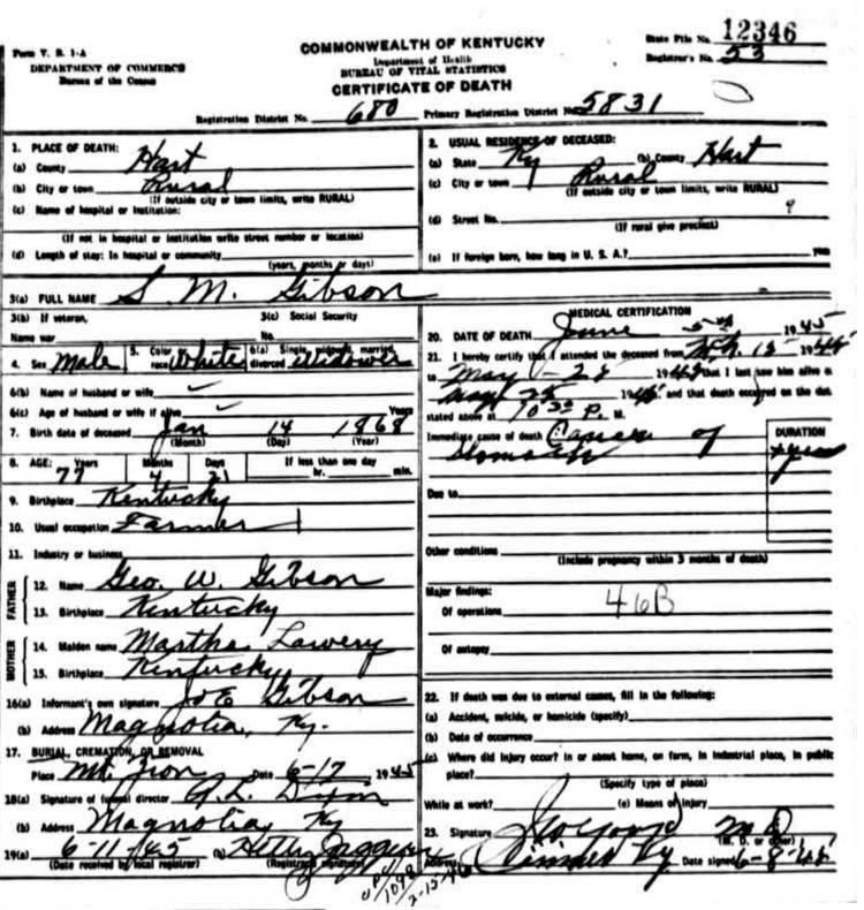 Form V. S. 1-A
DEPARTMENT OF COMMERCE
Bureau of the Census
COMMONWEALTH OF KENTUCKY
Department of Health
BUREAU OF VITAL STATISTICS
CERTIFICATE OF DEATH
State File No. 12346
Registrar's No. 53
Registration District No. 680 Primary Registration District No. 5831
1. PLACE OF DEATH:
(a) County Hart
(b) City or town Rural
(If outside city or town limits, write RURAL)
(c) Name of hospital or institution:
(If not in hospital or institution write street number or location)
(d) Length of stay: In hospital or community
(years, months or days)
2. USUAL RESIDENCE OF DECEASED:
(a) State Ky (b) County Hart
(c) City or town Rural
(If outside city or town limits, write RURAL)
(d) Street No. 9
(If rural give precinct)
(e) If foreign born, how long in U. S. A.?
3(a) FULL NAME S M. Gibson
3(b) If veteran,
Name war
3(c) Social Security
No.
4. Sex Male 5. Color race White 6(a) Single, widowed, married, divorced Widower
6(b) Name of husband or wife
6(c) Age of husband or wife if alive Years
7. Birth date of deceased Jan 14 1868
(Month) (Day) (Year)
8. AGE: Years Months Days If less than one day
77 4 21 hr. min.
9. Birthplace Kentucky
10. Usual occupation Farmer
11. Industry or business
FATHER
12. Name Geo. W. Gibson
13. Birthplace Kentucky
MOTHER
14. Maiden name Martha Lawery
15. Birthplace Kentucky
16(a) Informant's own signature Jo E Gibson
(b) Address Magnolia, Ky.
17. BURIAL, CREMATION, OR REMOVAL
Place Mt. Zion Date 6-17 1945
18(a) Signature of funeral director Dixon
(b) Address Magnolia, Ky
19(a) 6-11-45 (b)
(Date received by local registrar) (Registrar's signature)
MEDICAL CERTIFICATION
20. DATE OF DEATH June 5th 1945
21. I hereby certify that I attended the deceased from
to May 28 that I last saw him alive on
May and that death occurred on the date
stated above at 10 30 P. M.
Immediate cause of death Cancer of
Stomach
DURATION
year
Due to
Other conditions
(Include pregnancy within 3 months of death)
Major findings:
Of operations 46B
Of autopsy
22. If death was due to external causes, fill in the following:
(a) Accident, suicide, or homicide (specify)
(b) Date of occurrence
(c) Where did injury occur? in or about home, on farm, in industrial place, in public
place?
(Specify type of place)
While at work? (e) Means of injury
23. Signature M D
(M. D. or other)
Address Ky Date signed 6-8-45
1098
2-15-46